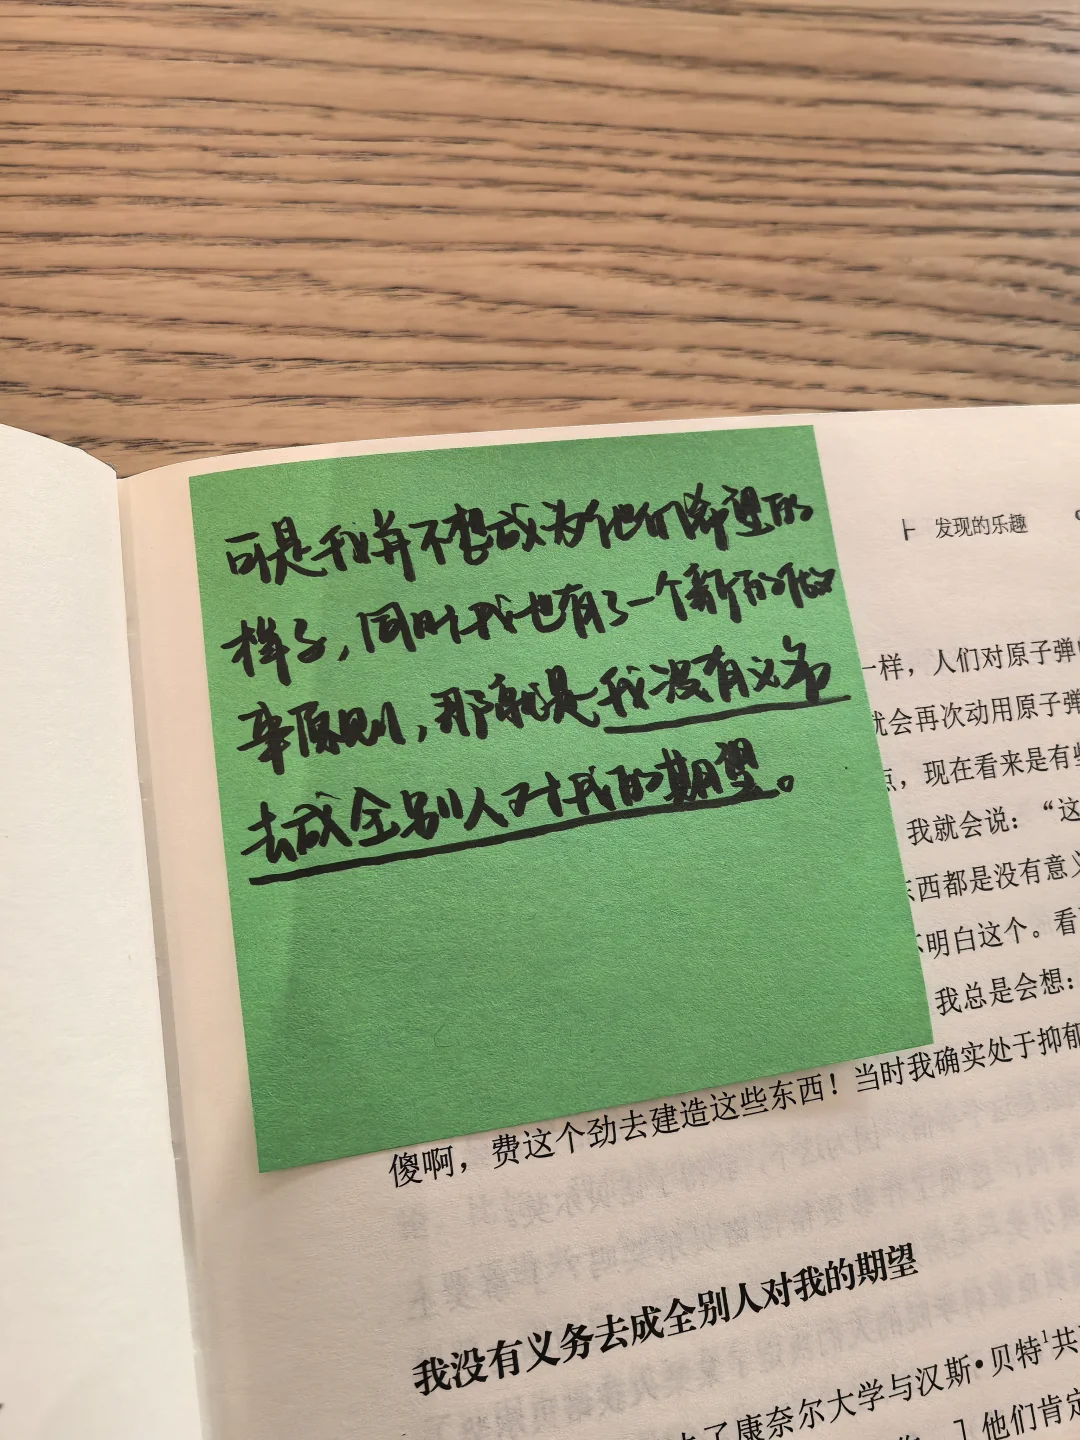 可是我并不想成为他们希望的
样子，同时我也有了一个新的做
事原则，那就是我没有义务
去成全别人对我的期望。
发现的乐趣
一样，人们对原子弹
就会再次动用原子弹
点，现在看来是有些
我就会说：“这
东西都是没有意义
不明白这个。看
我总是会想：
当时我确实处于抑郁
傻啊，费这个劲去建造这些东西！
我没有义务去成全别人对我的期望
了康奈尔大学与汉斯·贝特1共
］他们肯定